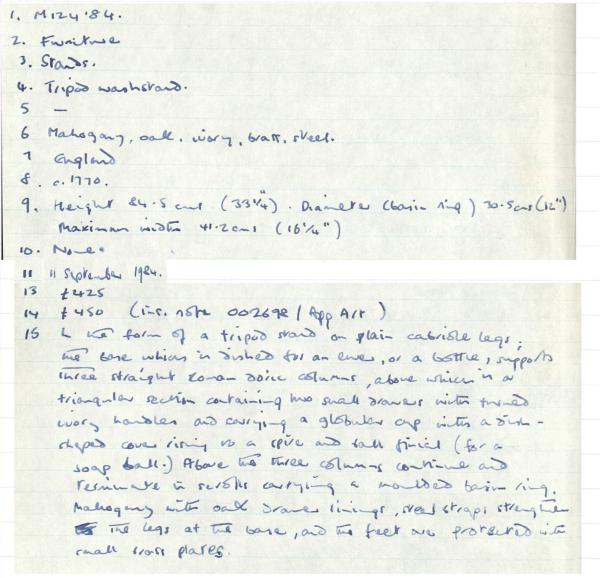 1. M124'84.
2. Furniture
3. Stands.
4. Tripod washstand.
5 —
6 Mahogany, oak, ivory, brass, steel.
7 England
8. c.1770.
9. Height 84.5 cms (33¼"). Diameter (basin ring) 30.5cms (12")
Maximum width 41.2cms (16¼")
10. None.
11 11 September 1984.
13 £425
14 £450 (ins. note 002692 / App Art)
15 In the form of a tripod stand on plain cabriole legs;
the base which is dished for an ewer, or a bottle, supports
three straight Roman doric columns, above which is a
triangular section containing two small drawers with turned
ivory handles and carrying a globular cup with a dish-
shaped cover rising to a spire and ball finial (for a
soap ball.) Above this three columns continue and
terminate in scrolls carrying a moulded basin ring.
Mahogany with oak drawer linings, steel straps strengthen
the legs at the base, and the feet are protected with
small brass plates.